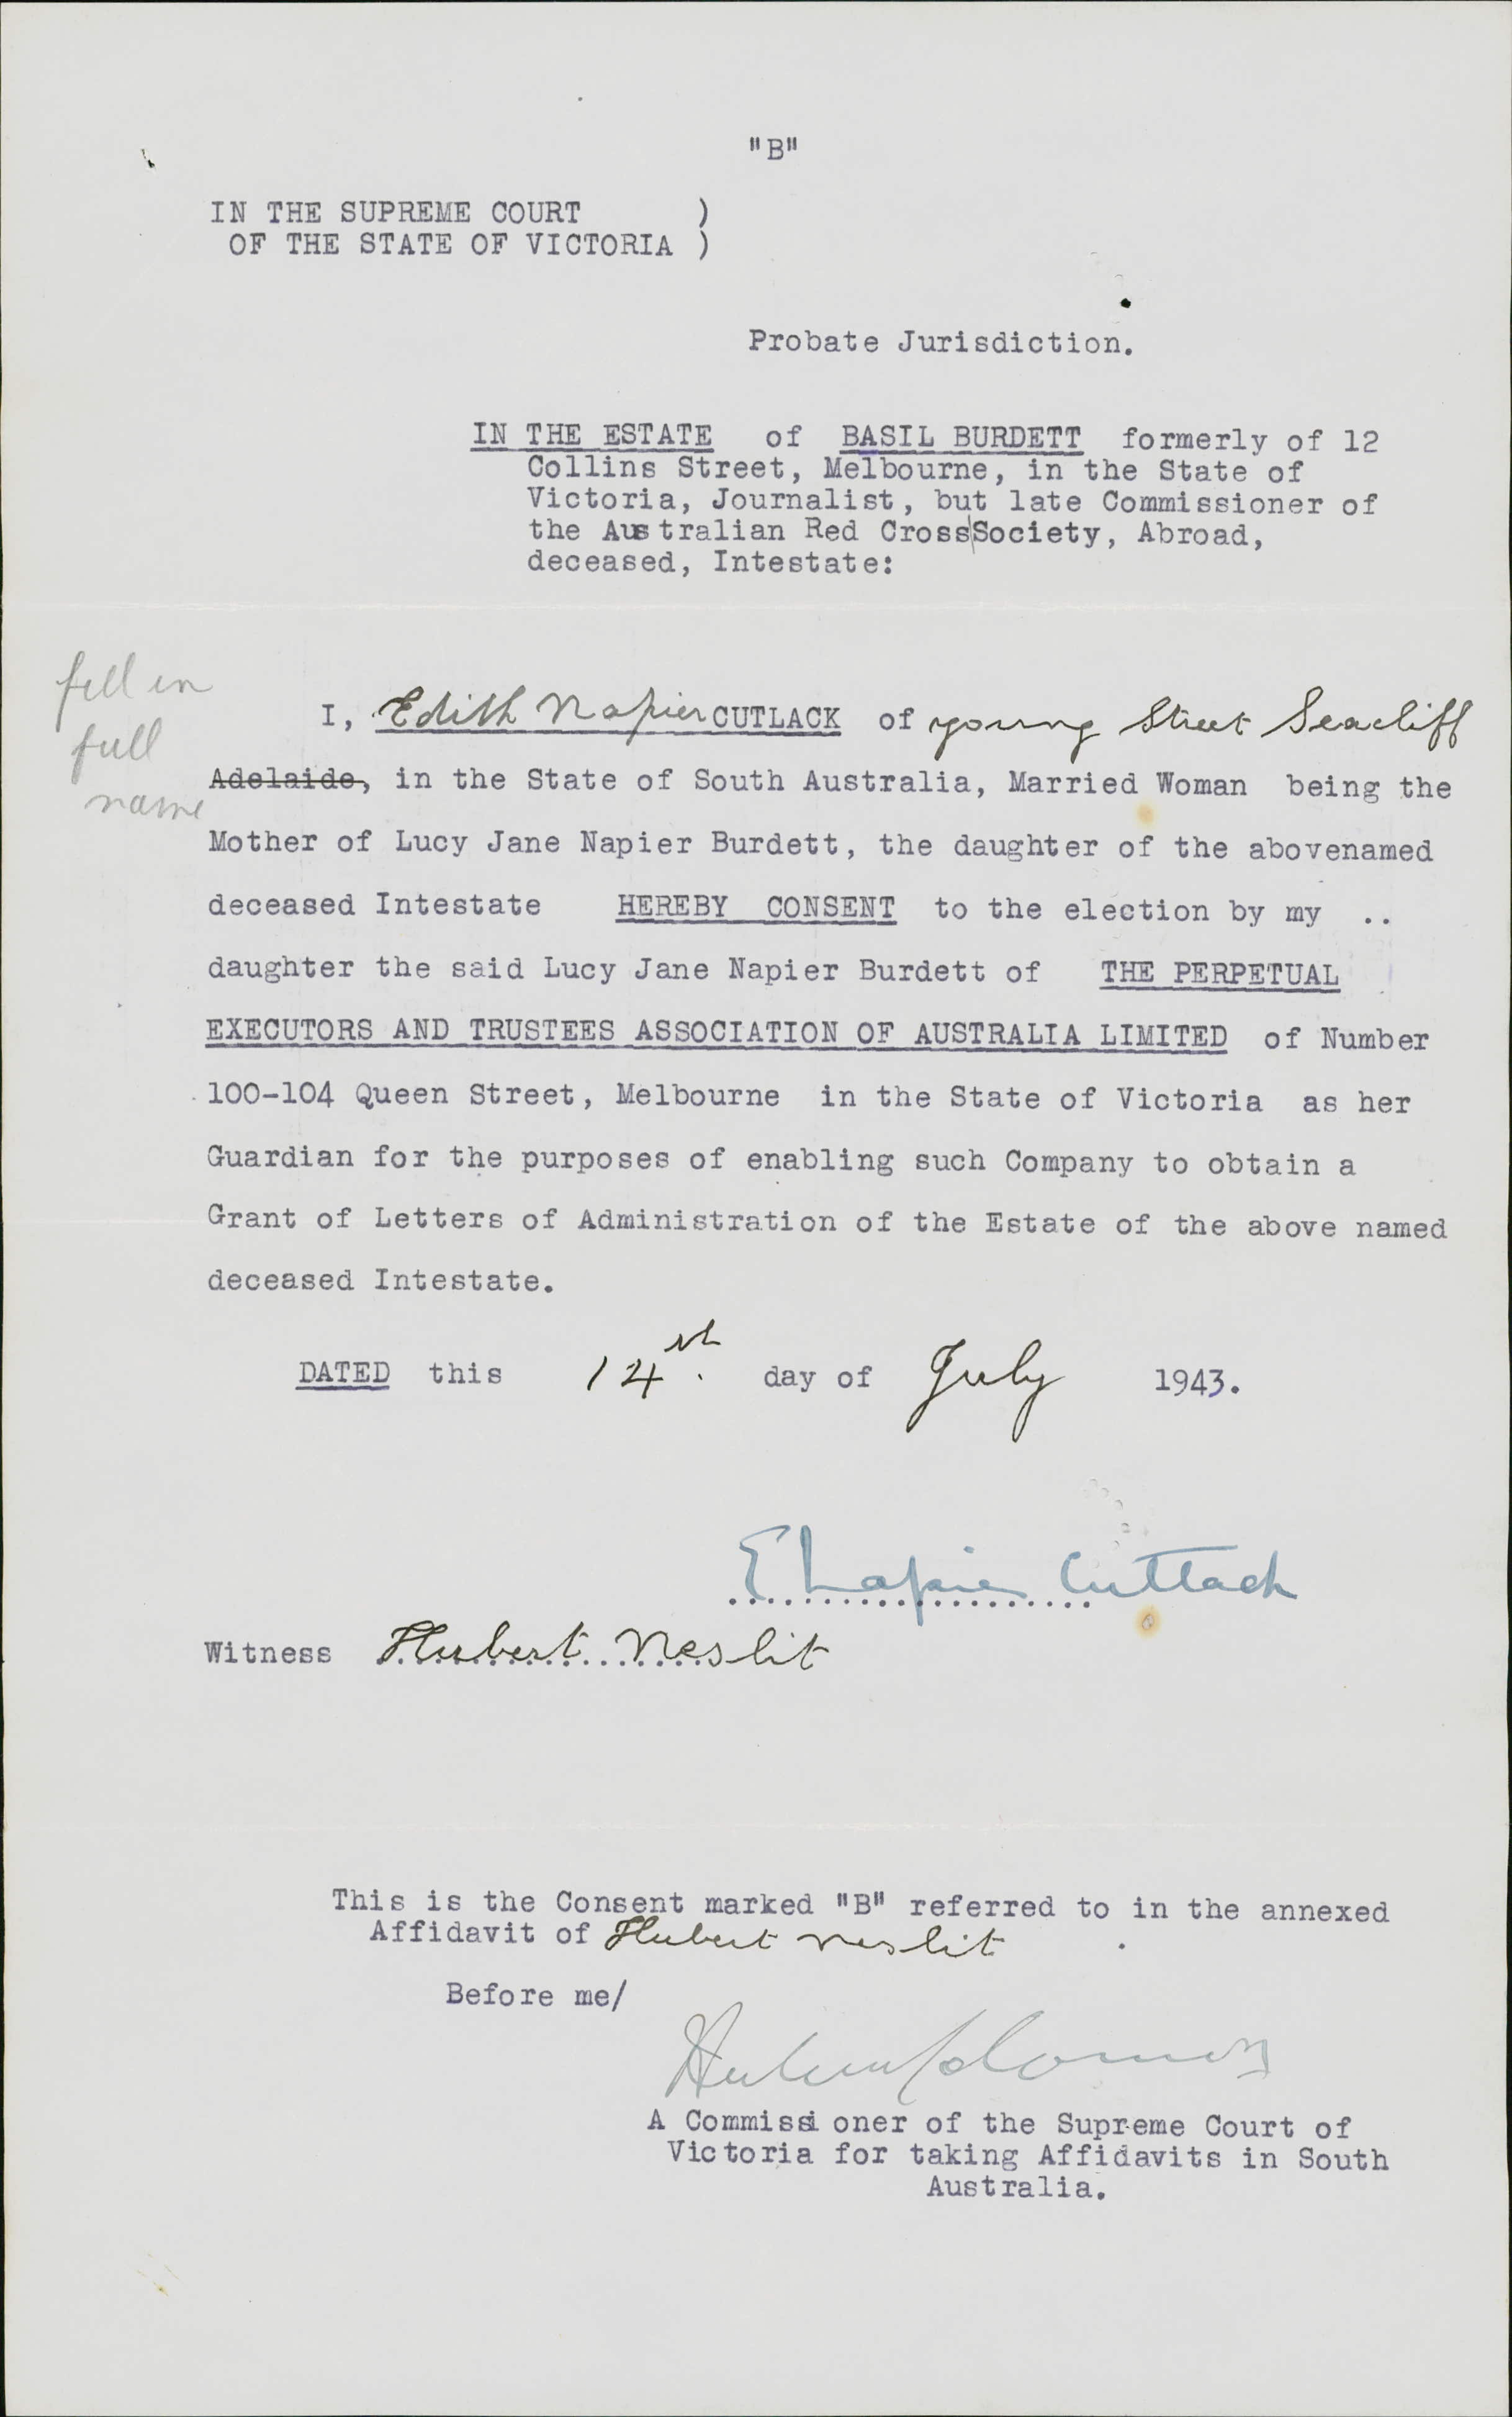 "B"
IN THE SUPREME COURT )
OF THE STATE OF VICTORIA )
Probate Jurisdiction.
IN THE ESTATE of BASIL BURDETT formerly of 12
Collins Street, Melbourne, in the State of
Victoria, Journalist, but late Commissioner of
the Australian Red Cross|Society, Abroad,
deceased, Intestate:
fill in
full
name
I, Edith Napier CUTLACK of young Street Seacliff
Adelaide, in the State of South Australia, Married Woman being the
Mother of Lucy Jane Napier Burdett, the daughter of the abovenamed
deceased Intestate HEREBY CONSENT to the election by my ..
daughter the said Lucy Jane Napier Burdett of THE PERPETUAL
EXECUTORS AND TRUSTEES ASSOCIATION OF AUSTRALIA LIMITED of Number
100-104 Queen Street, Melbourne in the State of Victoria as her
Guardian for the purposes of enabling such Company to obtain a
Grant of Letters of Administration of the Estate of the above named
deceased Intestate.
DATED this 14th. day of July 1943.
E Napier Cutlack
Witness Hubert Nesbit
This is the Consent marked "B" referred to in the annexed
Affidavit of Hubert Nesbit
Before me/
A Commissioner of the Supreme Court of
Victoria for taking Affidavits in South
Australia.